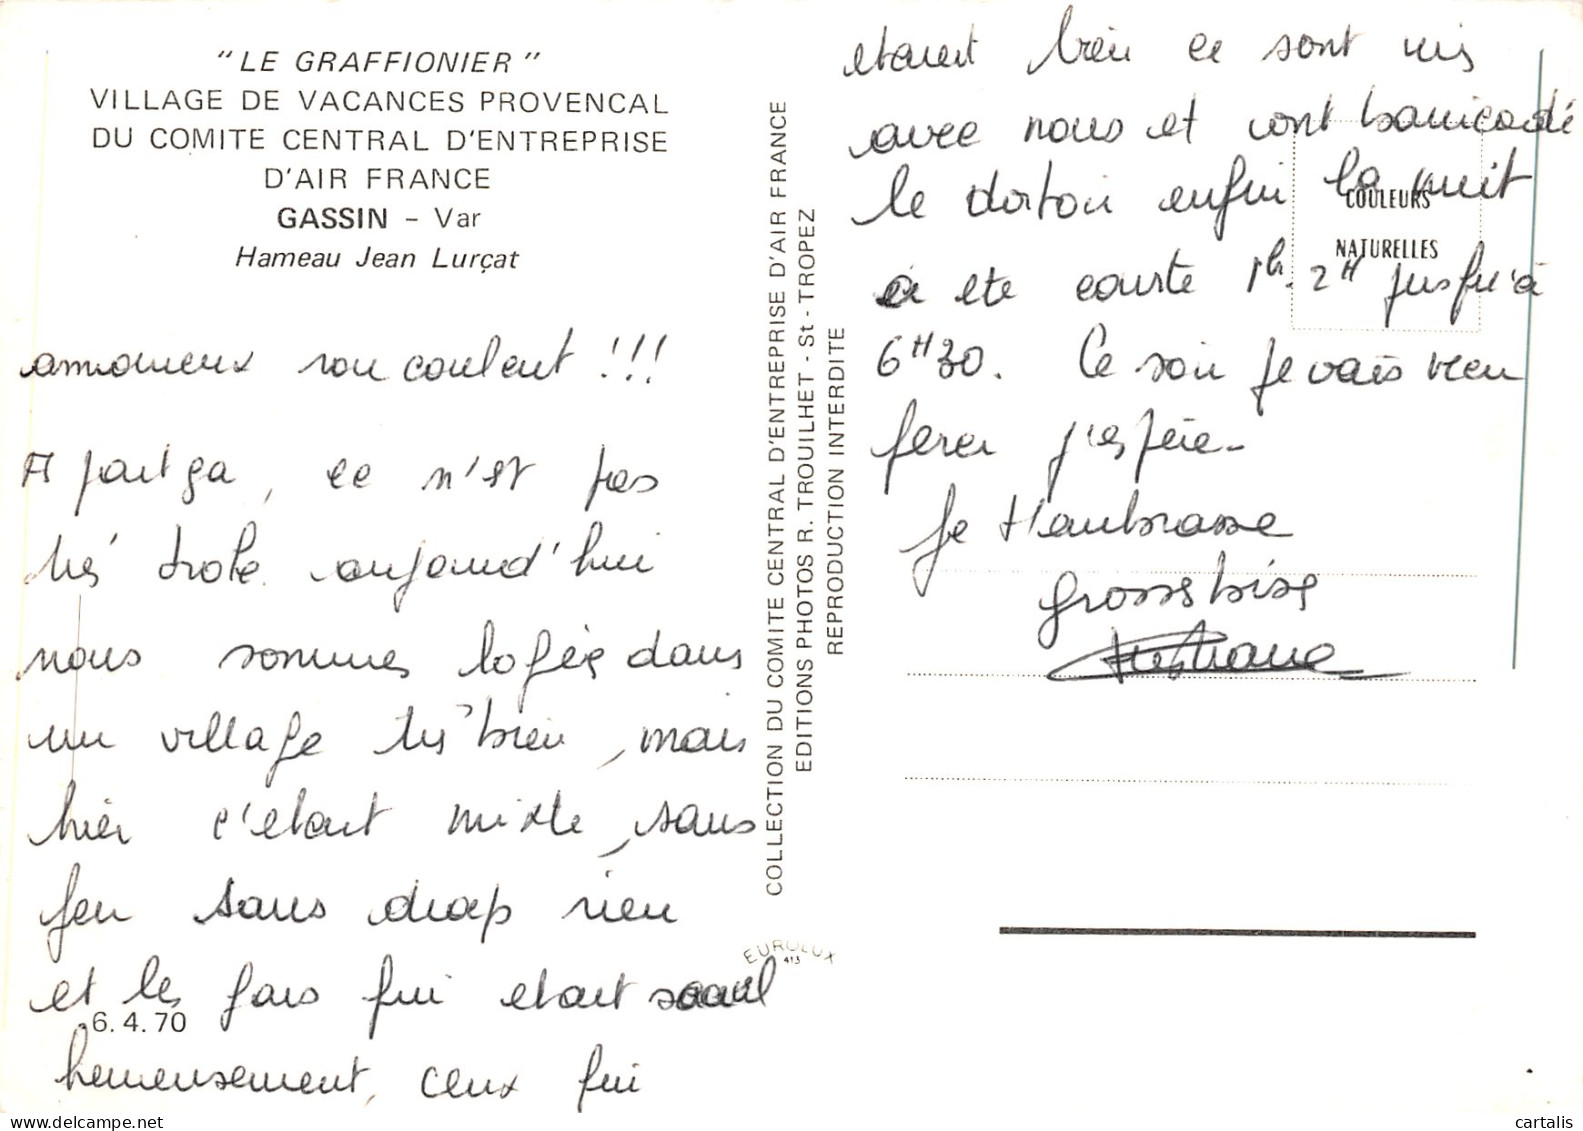 "LE GRAFFIONIER"
VILLAGE DE VACANCES PROVENCAL
DU COMITE CENTRAL D'ENTREPRISE
D'AIR FRANCE
GASSIN - Var
Hameau Jean Lurçat
amoureux roucoulent !!!
A part ça, ce n'est pas
très drole. aujourd'hui
nous sommes logées dans
un village très bien, mais
hier c'etait mixte, sans
feu sans drap rien
et les gars qui etait
6.4.70
heureusement, ceux qui
COLLECTION DU COMITE CENTRAL D'ENTREPRISE D'AIR FRANCE
EDITIONS PHOTOS R. TROUILHET - St - TROPEZ
REPRODUCTION INTERDITE
EUROLUX
413
etaient bien ce sont mis
avec nous et ont barricadé
le dortoir enfin la nuit
COULEURS
NATURELLES
a ete courte 1h. 2H jusqu'à
6H30. Ce soir je vais bien
j'espère-
Je t'embrasse
grosses bises
cartalis